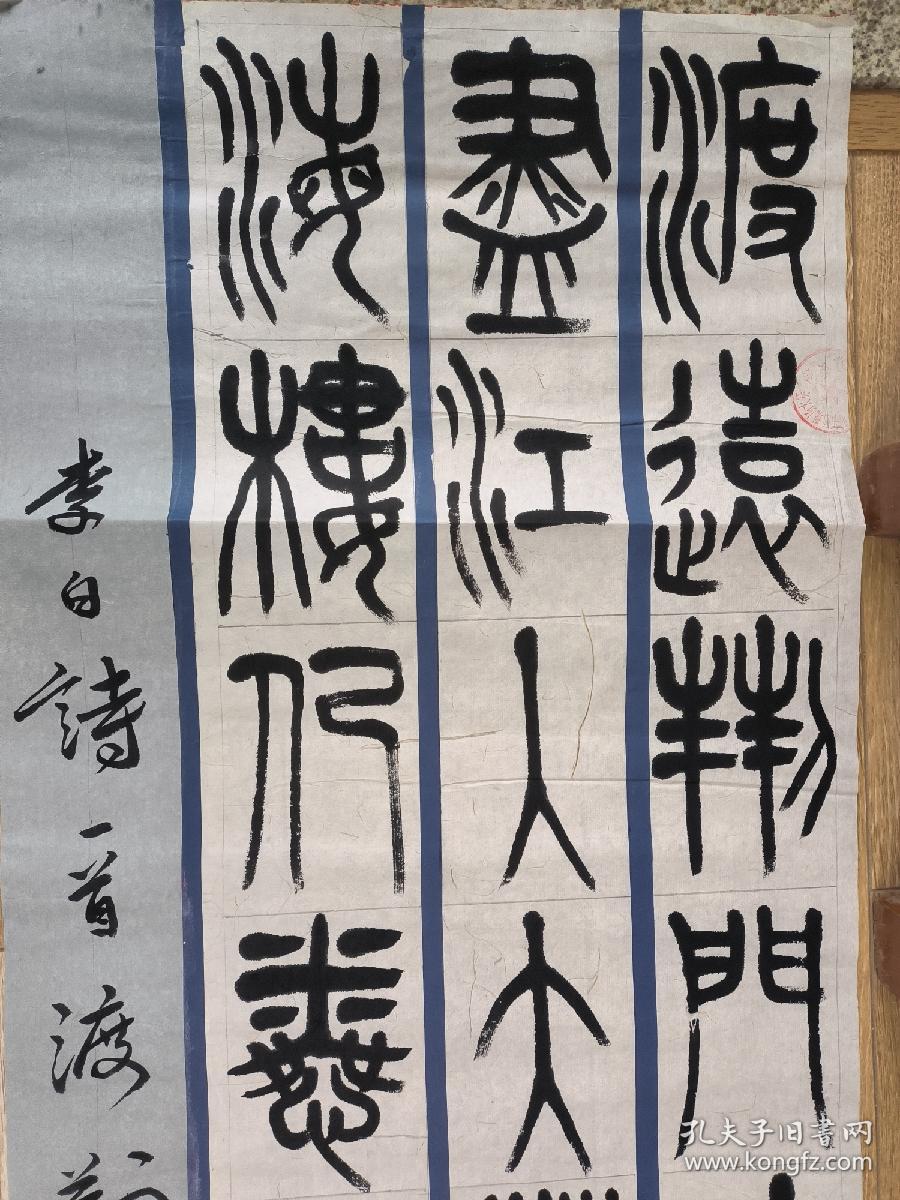 渡遠荊門
盡江入大
海樓仍憐
李白詩一首渡
孔夫子旧書网
www.kongfz.com